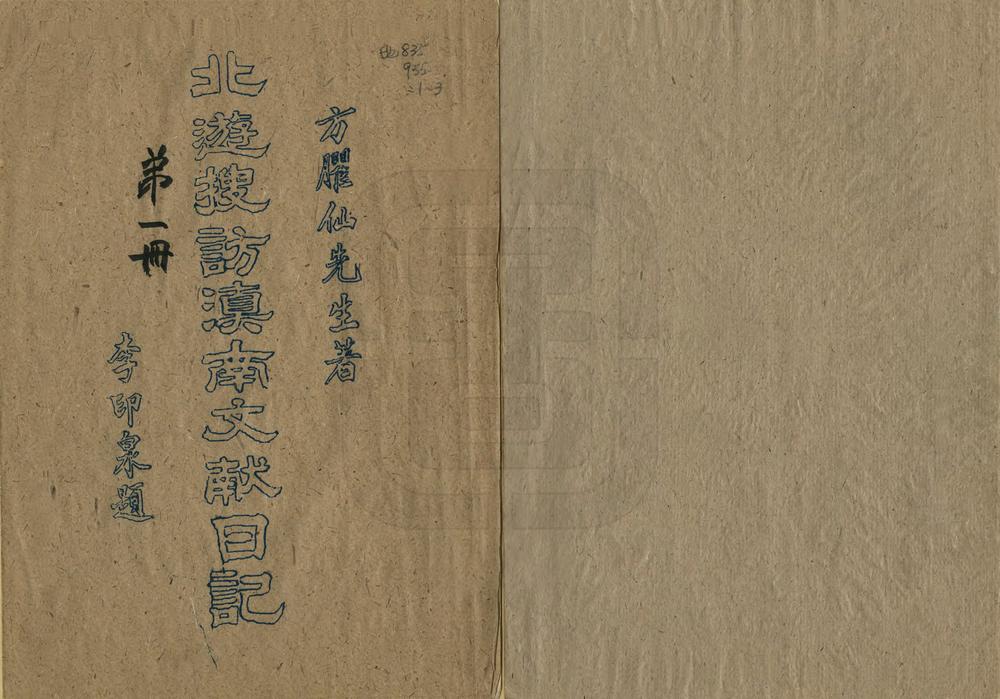 方臞仙先生著
北遊搜訪滇南文献日記
第一冊
李印泉題
835
955
:1-3